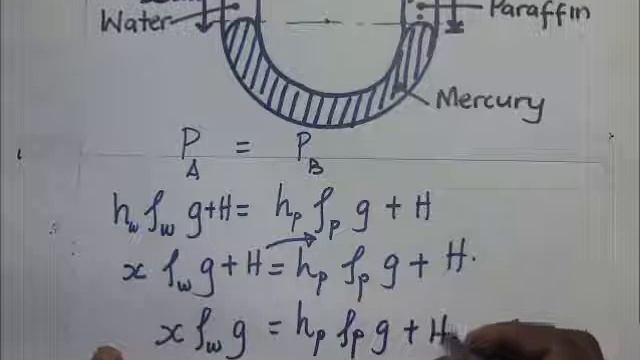 Water
Paraffin
Mercury
P_A = P_B
h_w ρ_w g+H = h_p ρ_p g + H
x ρ_w g + H = h_p ρ_p g + H.
x ρ_w g = h_p ρ_p g + H